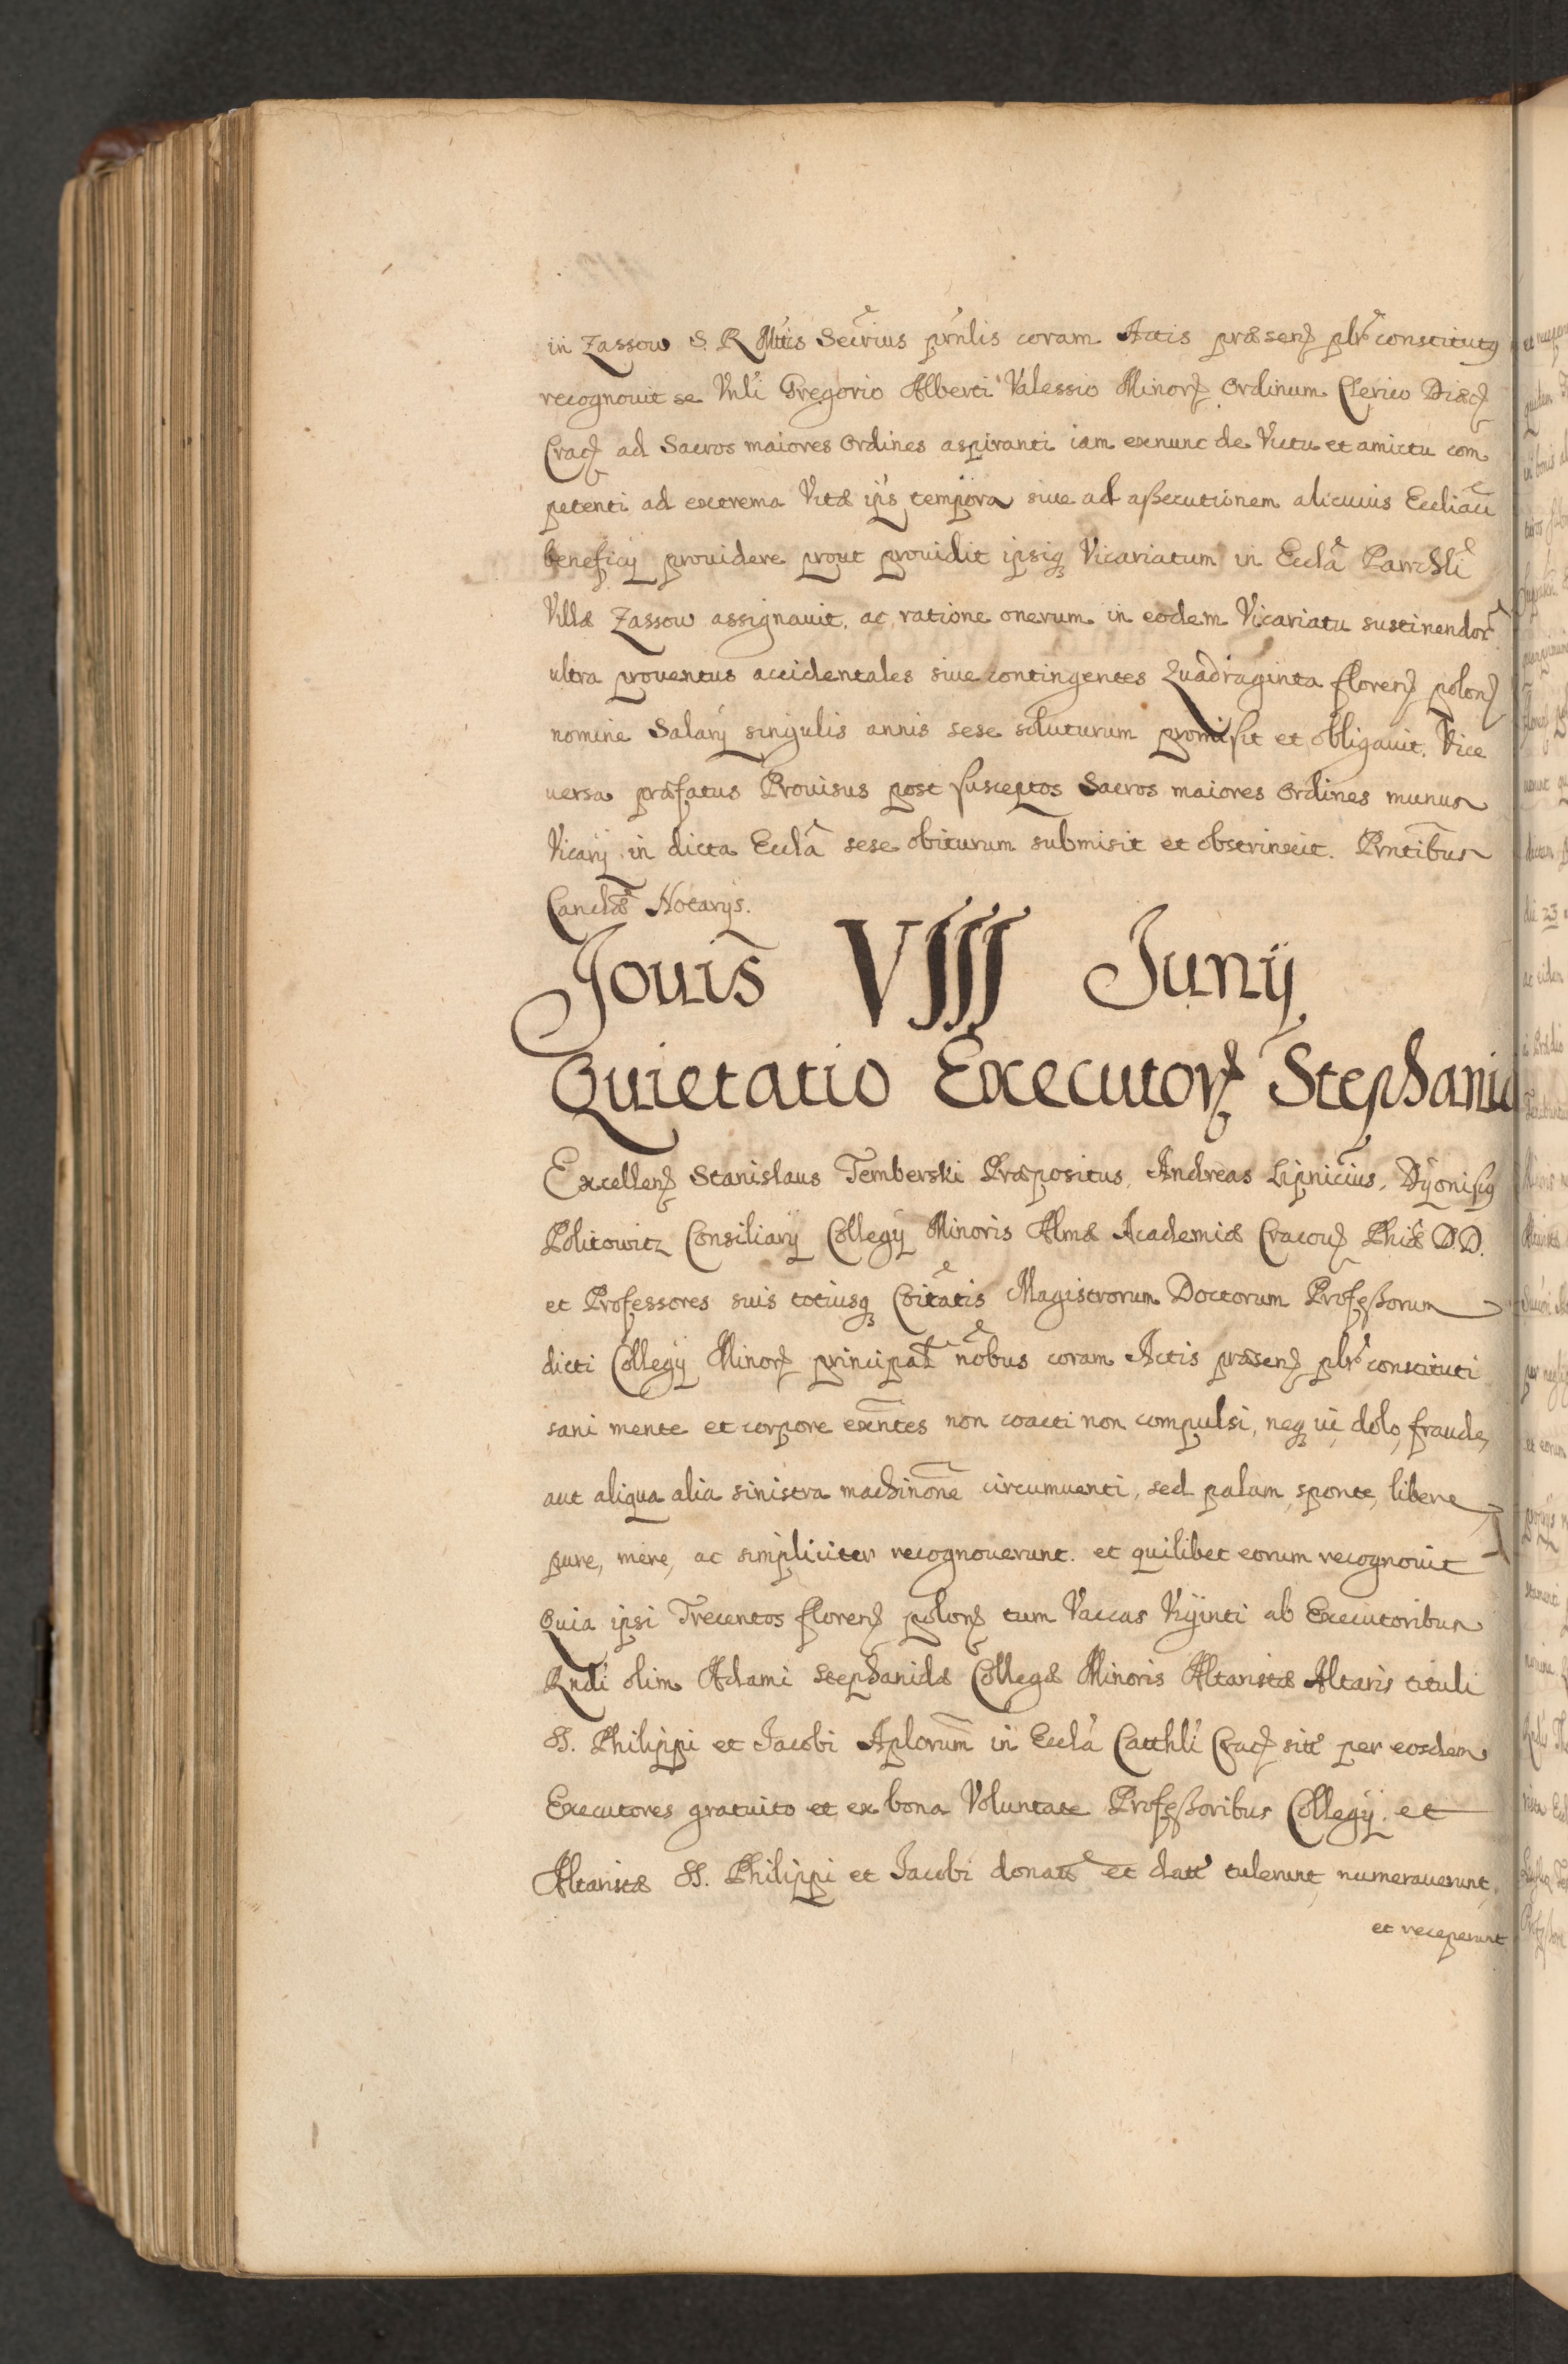 in Zassow S. R. Mttis Secrius prnlis coram Actis præsen plr constitutq
recognouit se Vnli Gregorio Alberti Valessio Minor Ordinum Clerico Diæc
Crac ad Sacros maiores Ordines aspiranti iam exnunc de Victu et amictu com
petenti ad extrema Vitæ ips tempora siue ad aßecutionem alicuius Eccliaci
beneficij prouidere prout prouidit ipsiq Vicariatum in Eccla Parrchli
Villæ Zassow assignauit. ac ratione onerum in eodem Vicariatu sustinendor
ultra prouentus accidentales siue contingentes Quadraginta floren polon
nomine Salarij singulis annis sese soluturum promisit et obligauit. Vice
uersa præfatus Prouisus post susceptos Sacros maiores Ordines munus
Vicarij in dicta Eccla sese obiturum submisit et obstrinxit. Prntibus
Canclæ Notarijs.
Jouis VIII Junij
Quietatio Executor Stephanid
Excellen Stanislaus Temberski Præpositus, Andreas Lipnicius, Dÿonisiq
Politowitz Consiliarij Collegij Minoris Almæ Academiæ Cracou Phiæ D.D.
et Professores suis totiusq Coitatis Magistrorum Doctorum Profeßorum
dicti Collegij Minor principal nobus coram Actis præsen plr constituti
sani mente et corpore exntes non coacti non compulsi, neq ui, dolo, fraude,
aut aliqua alia sinistra machinone circumuenti, sed palam, sponte, libere
pure, mere, ac simpliciter recognouerunt. et quilibet eorum recognouit
Quia ipsi Trecentos floren polon tum Vaccas Viginti ab Executoribus
Rndi olim Adami Stephanidæ Collegæ Minoris Altaristæ Altaris tituli
SS. Philippi et Jacobi Aplorum in Eccla Catthli Crac sitt per eosdem
Executores gratuito et ex bona Voluntate Profeßoribus Collegij et
Altaristæ SS. Philippi et Jacobi donatt et datt tulerunt, numerauerunt,
et receperunt